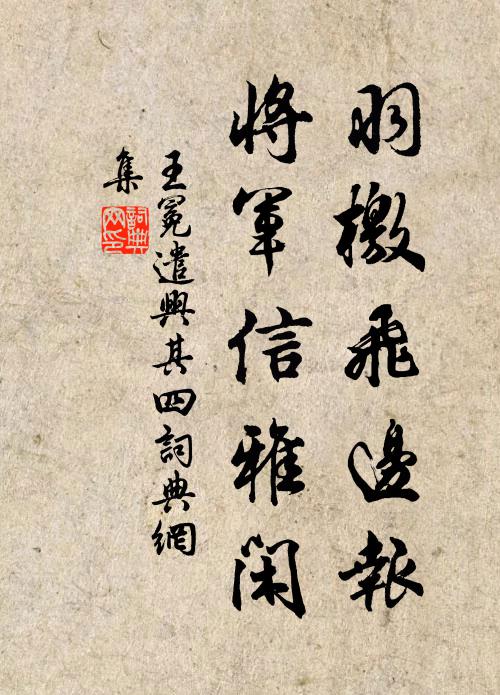 羽檄飛邊報
將軍信雅閑
王冕遣興其四詞典網
集
詞典
网印